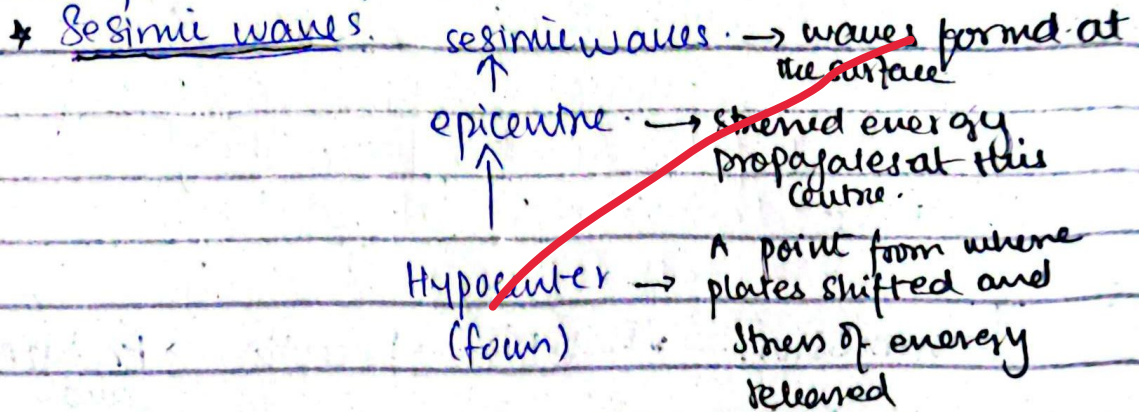 * Sesimic waves. sesimic waves. → waves formd at
the surface
↑
epicentre. → strerred energy
propagates at this
centre.
↑
A point from where
Hypocenter → plates shifted and
(focus) stress of energy
released